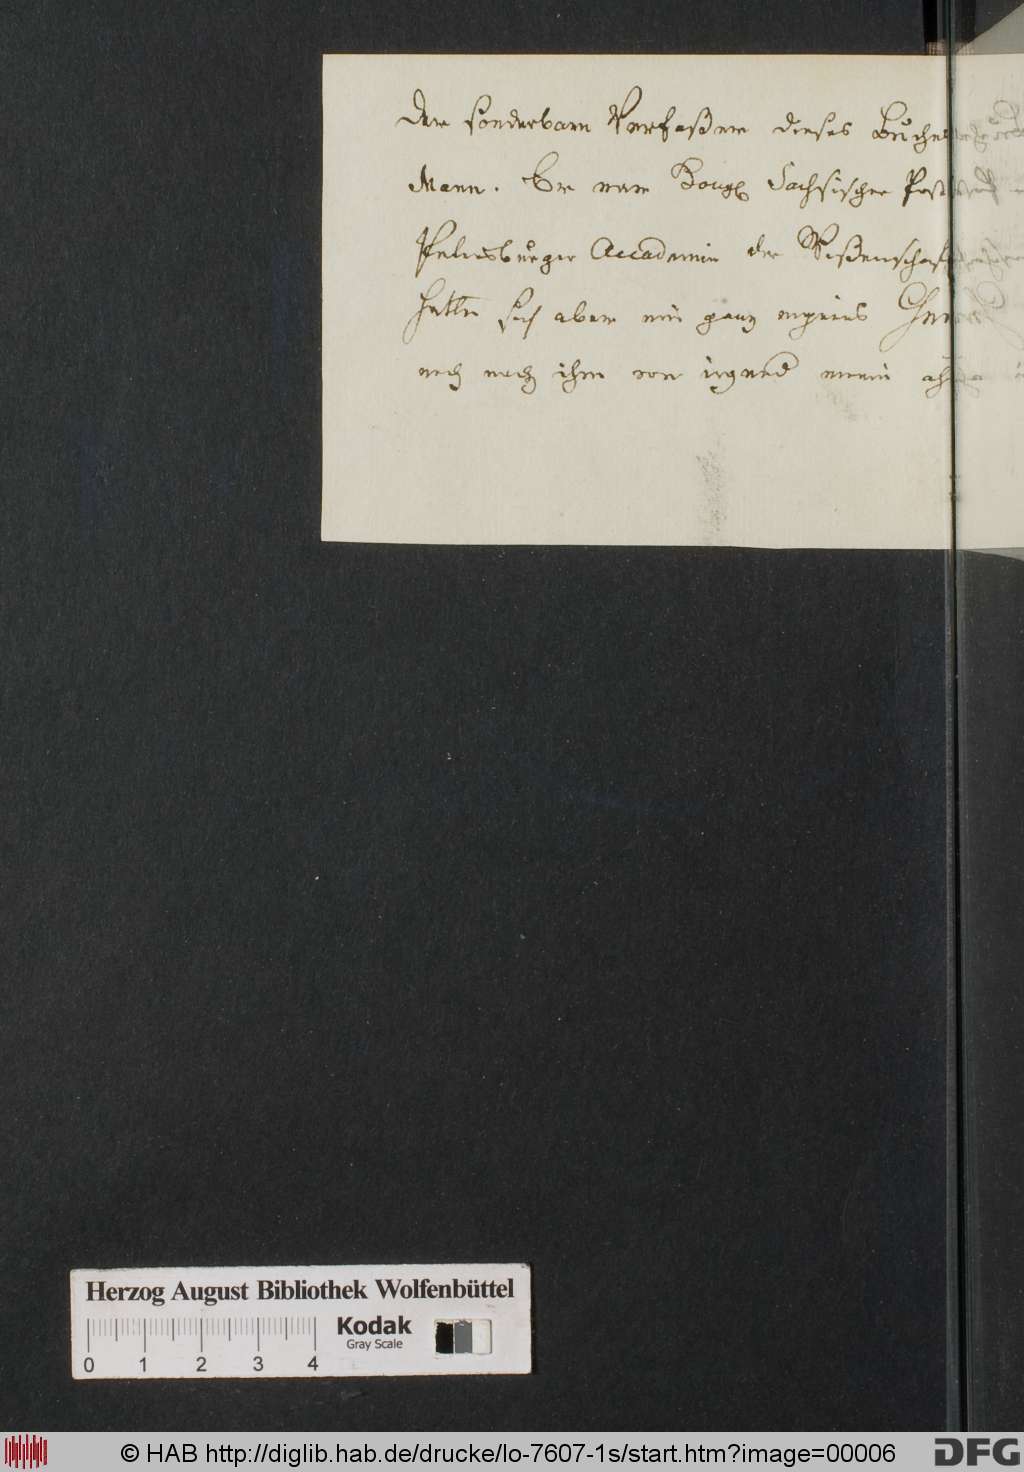 Der sonderbare Verfaßer dieses Buches
Mann. Er war Sächsischer Post
Petersburger Accademie der Wißenschaf
hatte sich aber ein ganz eigenes
noch nach ihm von irgend einem
Herzog August Bibliothek Wolfenbüttel
Kodak
Gray Scale
0 1 2 3 4
© HAB http://diglib.hab.de/drucke/lo-7607-1s/start.htm?image=00006
DFG